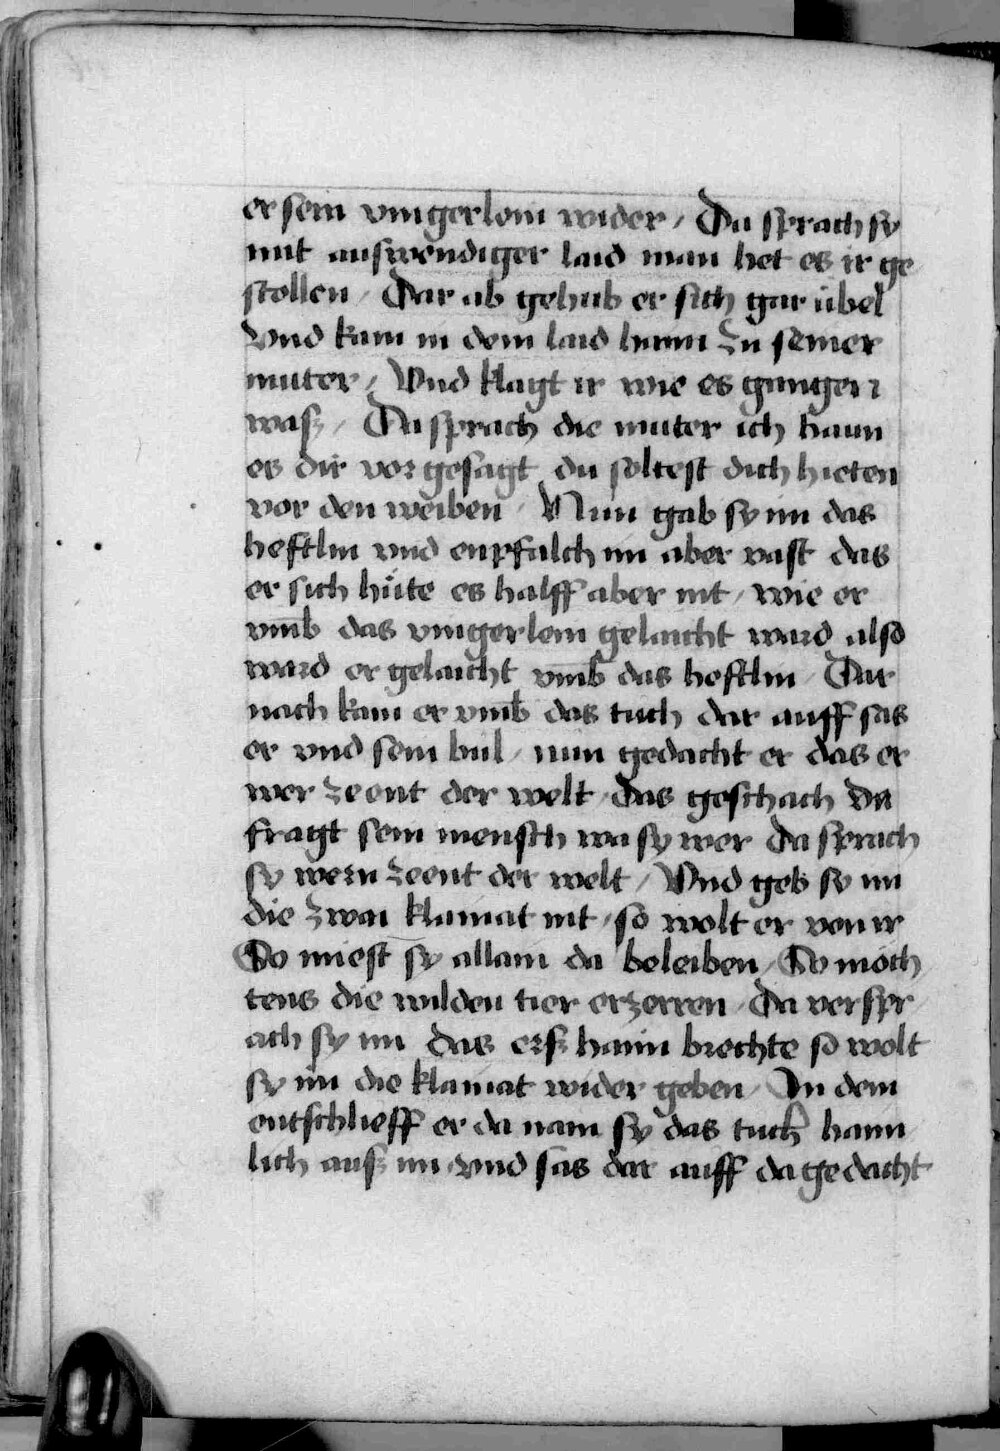 er sein vingerlein wider / Da sprach sy
mit auswendiger laid man het es ir ge
stollen / Dar ab gehub er sich gar übel
Vnd kam in dem laid haim zu seiner
muter / Vnd klagt ir wie es gangen
wasz / Da sprach die muter ich haun
es dir vor gesagt du soltest dich hieten
vor den weiben / Nun gab sy im das
heftlin vnd enpfalch im aber vast das
er sich hüte es halff aber nit / wie er
vmb das vingerlein gelaicht ward also
ward er gelaicht vmb das heftlin / Dar
nach kam er vmb das tuch dar auff sas
er vnd sein bul / nun gedacht er das er
wer ze ent der welt / das geschach da
fragt sein mensch wa sy wer Da sprach
sy wern ze ent der welt / Vnd geb sy im
die zwai klainat nit / so wolt er von ir
So miest sy allain da beleiben / So möch
tens die wilden tier erzerren / Da verspr
ach sy im das ersz haim brechte so wolt
sy im die klainat wider geben / In dem
entschlieff er da nam sy das tuch haim
lich ausz im vnd sas dar auff da gedacht